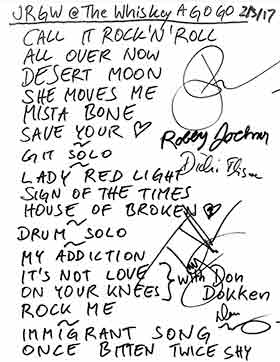 JRGW @ The Whisky A GO GO 2/3/17
CALL IT ROCK 'N' ROLL
ALL OVER NOW
DESERT MOON
SHE MOVES ME
MISTA BONE
SAVE YOUR ♡
~
GIT SOLO
~
LADY RED LIGHT
SIGN OF THE TIMES
HOUSE OF BROKEN ♡
~
DRUM SOLO
~
MY ADDICTION
IT'S NOT LOVE } with Don
ON YOUR KNEES } DOKKEN
ROCK ME
~
IMMIGRANT SONG
ONCE BITTEN TWICE SHY